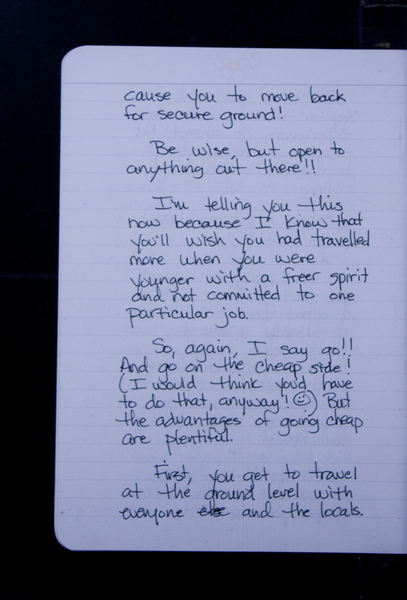 cause you to move back
for secure ground!
Be wise, but open to
anything out there!!
I'm telling you this
now because I know that
you'll wish you had travelled
more when you were
younger with a freer spirit
and not committed to one
particular job.
So, again, I say go!!
And go on the cheap side!
(I would think you'd have
to do that, anyway! ☺) But
the advantages of going cheap
are plentiful.
First, you get to travel
at the ground level with
everyone else and the locals.